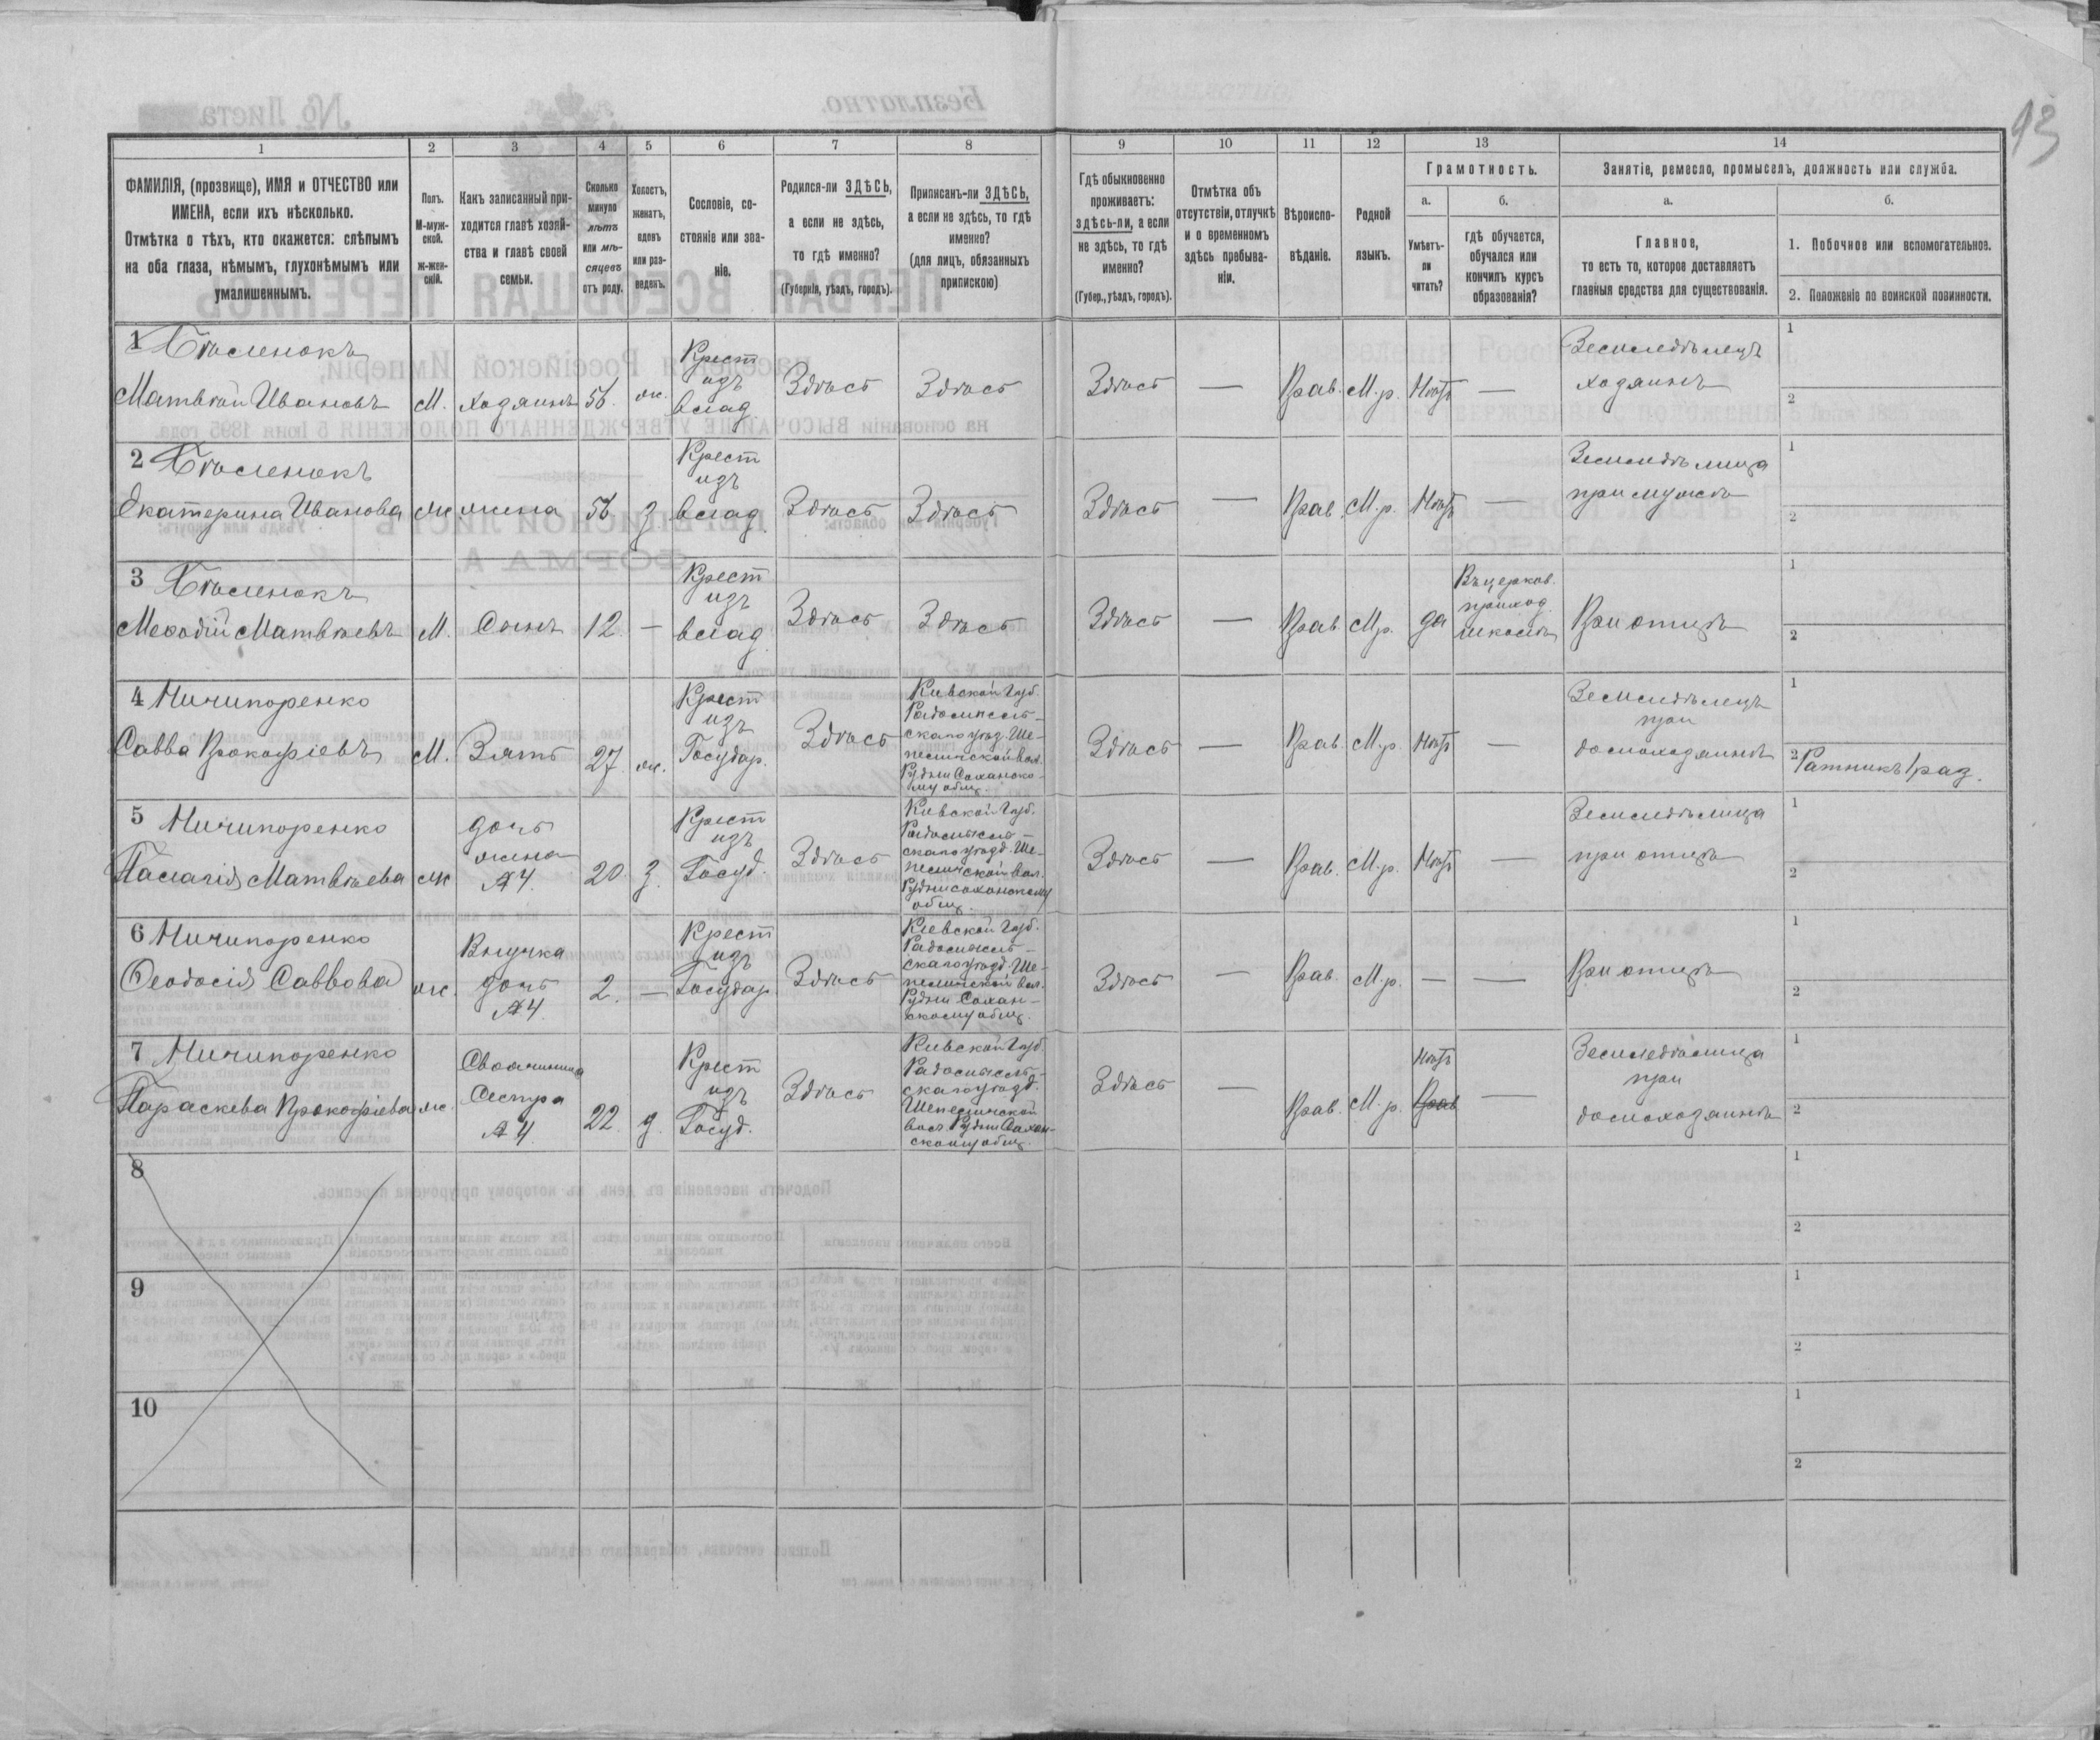 13
1 2 3 4 5 6 7 8 9 10 11 12 13 14
ФАМИЛІЯ, (прозвище), ИМЯ и ОТЧЕСТВО или
ИМЕНА, если ихъ нѣсколько.
Отмѣтка о тѣхъ, кто окажется: слѣпымъ
на оба глаза, нѣмымъ, глухонѣмымъ или
умалишеннымъ.
Полъ.
М-муж-
ской.
Ж-жен-
скій.
Какъ записанный при-
ходится главѣ хозяй-
ства и главѣ своей
семьи.
Сколько
минуло
лѣтъ
или мѣ-
сяцевъ
отъ роду.
Холостъ,
женатъ,
вдовъ
или раз-
веденъ.
Сословіе, со-
стояніе или зва-
ніе.
Родился-ли ЗДѢСЬ,
а если не здѣсь,
то гдѣ именно?
(Губернія, уѣздъ, городъ).
Приписанъ-ли ЗДѢСЬ,
а если не здѣсь, то гдѣ
именно?
(для лицъ, обязанныхъ
припискою)
Гдѣ обыкновенно
проживаетъ:
здѣсь-ли, а если
не здѣсь, то гдѣ
именно?
(Губер., уѣздъ, городъ).
Отмѣтка объ
отсутствіи, отлучкѣ
и о временномъ
здѣсь пребыва-
ніи.
Вѣроиспо-
вѣданіе.
Родной
языкъ.
Грамотность.
а.
Умѣетъ-
ли
читать?
б.
гдѣ обучается,
обучался или
кончилъ курсъ
образованія?
Занятіе, ремесло, промыселъ, должность или служба.
а.
Главное,
то есть то, которое доставляетъ
главныя средства для существованія.
б.
1. Побочное или вспомогательное.
2. Положеніе по воинской повинности.
1
Матвѣй Ивановъ
М.
хозяинъ
56.
ж.
Крест
изъ
влад.
Здѣсь
Здѣсь
Здѣсь
—
Прав.
М. р.
Нѣтъ
—
Земледѣлецъ
хозяинъ
1
2
2
Екатерина Иванова
ж
жена
56
з
Крест
изъ
влад.
Здѣсь
Здѣсь
Здѣсь
—
Прав.
М. р.
Нѣтъ
—
при мужѣ
1
2
3
Меѳодій Матвѣевъ
М.
Сынъ
12.
—
Крест
изъ
влад.
Здѣсь
Здѣсь
Здѣсь
—
Прав.
М. р.
да
Въ церков.
приход.
школѣ
При отцѣ
1
2
4 Ничипоренко
Савва Прокофіевъ
М.
Зять
27.
ж.
Крест
изъ
Государ.
Здѣсь
Кіевской Губ.
Радомысль-
скаго уѣзд. Ше-
пеличской вол.
Рудни
общ.
Здѣсь
—
Прав.
М. р.
Нѣтъ
—
Земледѣлецъ
при
домохозяинѣ
1
2 Ратникъ 1 раз.
5 Ничипоренко
Пелагія Матвѣева
ж
дочь
жена
№ 4.
20.
з.
Крест
изъ
Госуд.
Здѣсь
Кіевской Губ.
Радомысль-
скаго уѣзд. Ше-
пеличской вол.
общ.
Здѣсь
—
Прав.
М. р.
Нѣтъ
—
при отцѣ
1
2
6 Ничипоренко
Ѳеодосія Саввова
ж.
Внучка
дочь
№ 4.
2.
—
Крест
изъ
Государ.
Здѣсь
Кіевской Губ.
Радомысль-
скаго уѣзд. Ше-
пеличской вол.
Рудни
общ.
Здѣсь
—
Прав.
М. р.
—
—
При отцѣ
1
2
7 Ничипоренко
Параскева Прокофіева
ж.
Сестра
№ 4.
22.
д.
Крест
изъ
Госуд.
Здѣсь
Кіевской Губ.
Радомысль-
скаго уѣзд.
Шепеличской
вол. Рудни
общ.
Здѣсь
—
Прав.
М. р.
Нѣтъ
Прав
—
при
домохозяинѣ
1
2
8
1
2
9
1
2
10
1
2